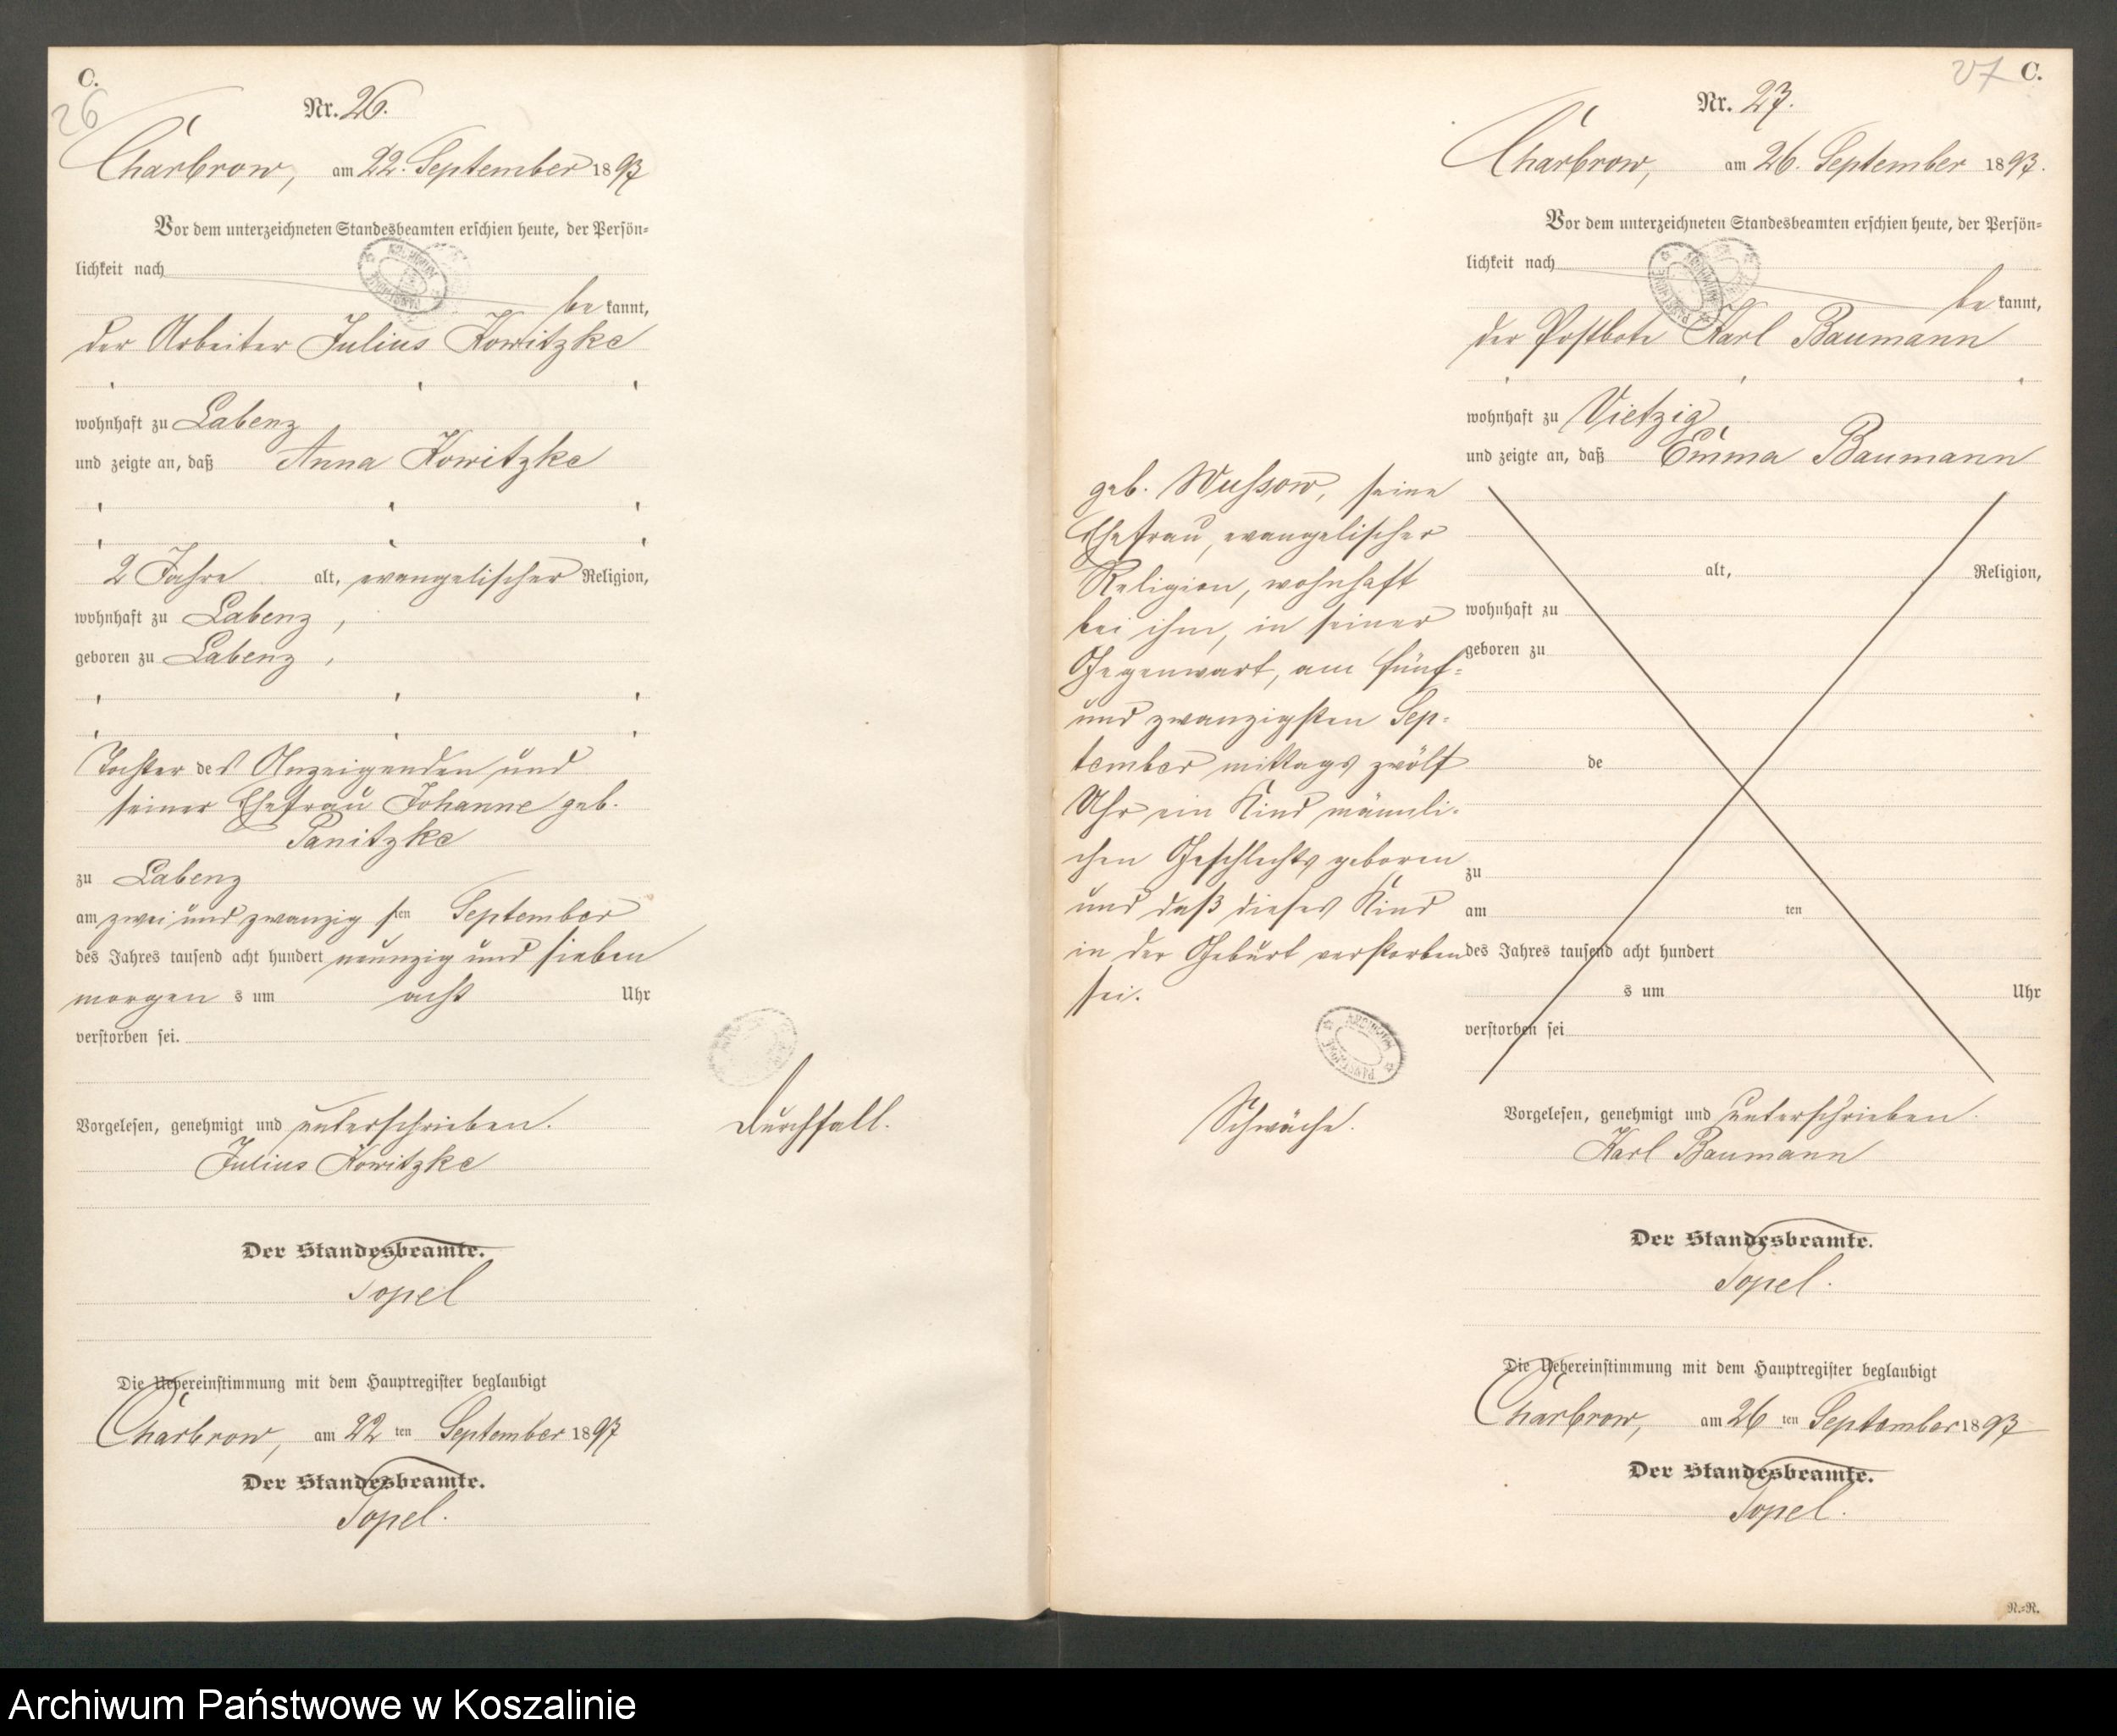 C.
26
Nr. 26.
Charbrow, am 22. September 1897
Vor dem unterzeichneten Standesbeamten erschien heute, der Persön=
lichkeit nach
be kannt,
der Arbeiter Julius Kowitzke
wohnhaft zu Labenz
und zeigte an, daß Anna Kowitzke
2 Jahre alt, evangelischer Religion,
wohnhaft zu Labenz,
geboren zu Labenz,
Tochter des Anzeigenden und
seiner Ehefrau Johanne geb.
Panitzke
zu Labenz
am zwei und zwanzig sten September
des Jahres tausend acht hundert neunzig und sieben
morgen s um acht Uhr
verstorben sei.
Vorgelesen, genehmigt und unterschrieben.
Julius Kowitzke
Durchfall.
Der Standesbeamte.
Topel
Die Uebereinstimmung mit dem Hauptregister beglaubigt
Charbrow, am 22 ten September 1897
Der Standesbeamte.
Topel.
27 C.
Nr. 27.
Charbrow, am 26. September 1897.
Vor dem unterzeichneten Standesbeamten erschien heute, der Persön=
lichkeit nach
be kannt,
der Postbote Karl Baumann
wohnhaft zu Vietzig
und zeigte an, daß Emma Baumann
geb. Wussow, seine
Ehefrau, evangelischer
Religion, wohnhaft
bei ihm, in seiner
Gegenwart, am fünf=
und zwanzigsten Sep=
tember mittags zwölf
Uhr ein Kind männli=
chen Geschlechts geboren
und daß dieses Kind
in der Geburt verstorben
sei.
alt, Religion,
wohnhaft zu
geboren zu
de
zu
am ten
des Jahres tausend acht hundert
s um Uhr
verstorben sei
Schwäche.
Vorgelesen, genehmigt und unterschrieben.
Karl Baumann
Der Standesbeamte.
Topel.
Die Uebereinstimmung mit dem Hauptregister beglaubigt
Charbrow, am 26 ten September 1897
Der Standesbeamte.
Topel.
R.=R.
Archiwum Państwowe w Koszalinie